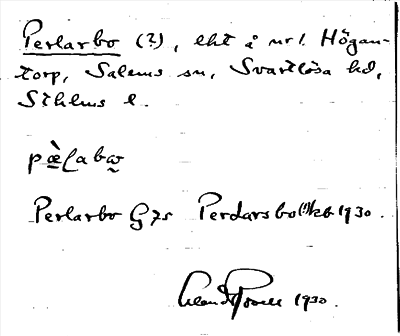 Perlarbo (?), lht å nr 1. Högan-
torp, Salems sn, Svartlösa hd,
Sthlms l.
pæ̀ḷabω
Perlarbo G 7s Perdarsbo (!) kb 1930.
1930.